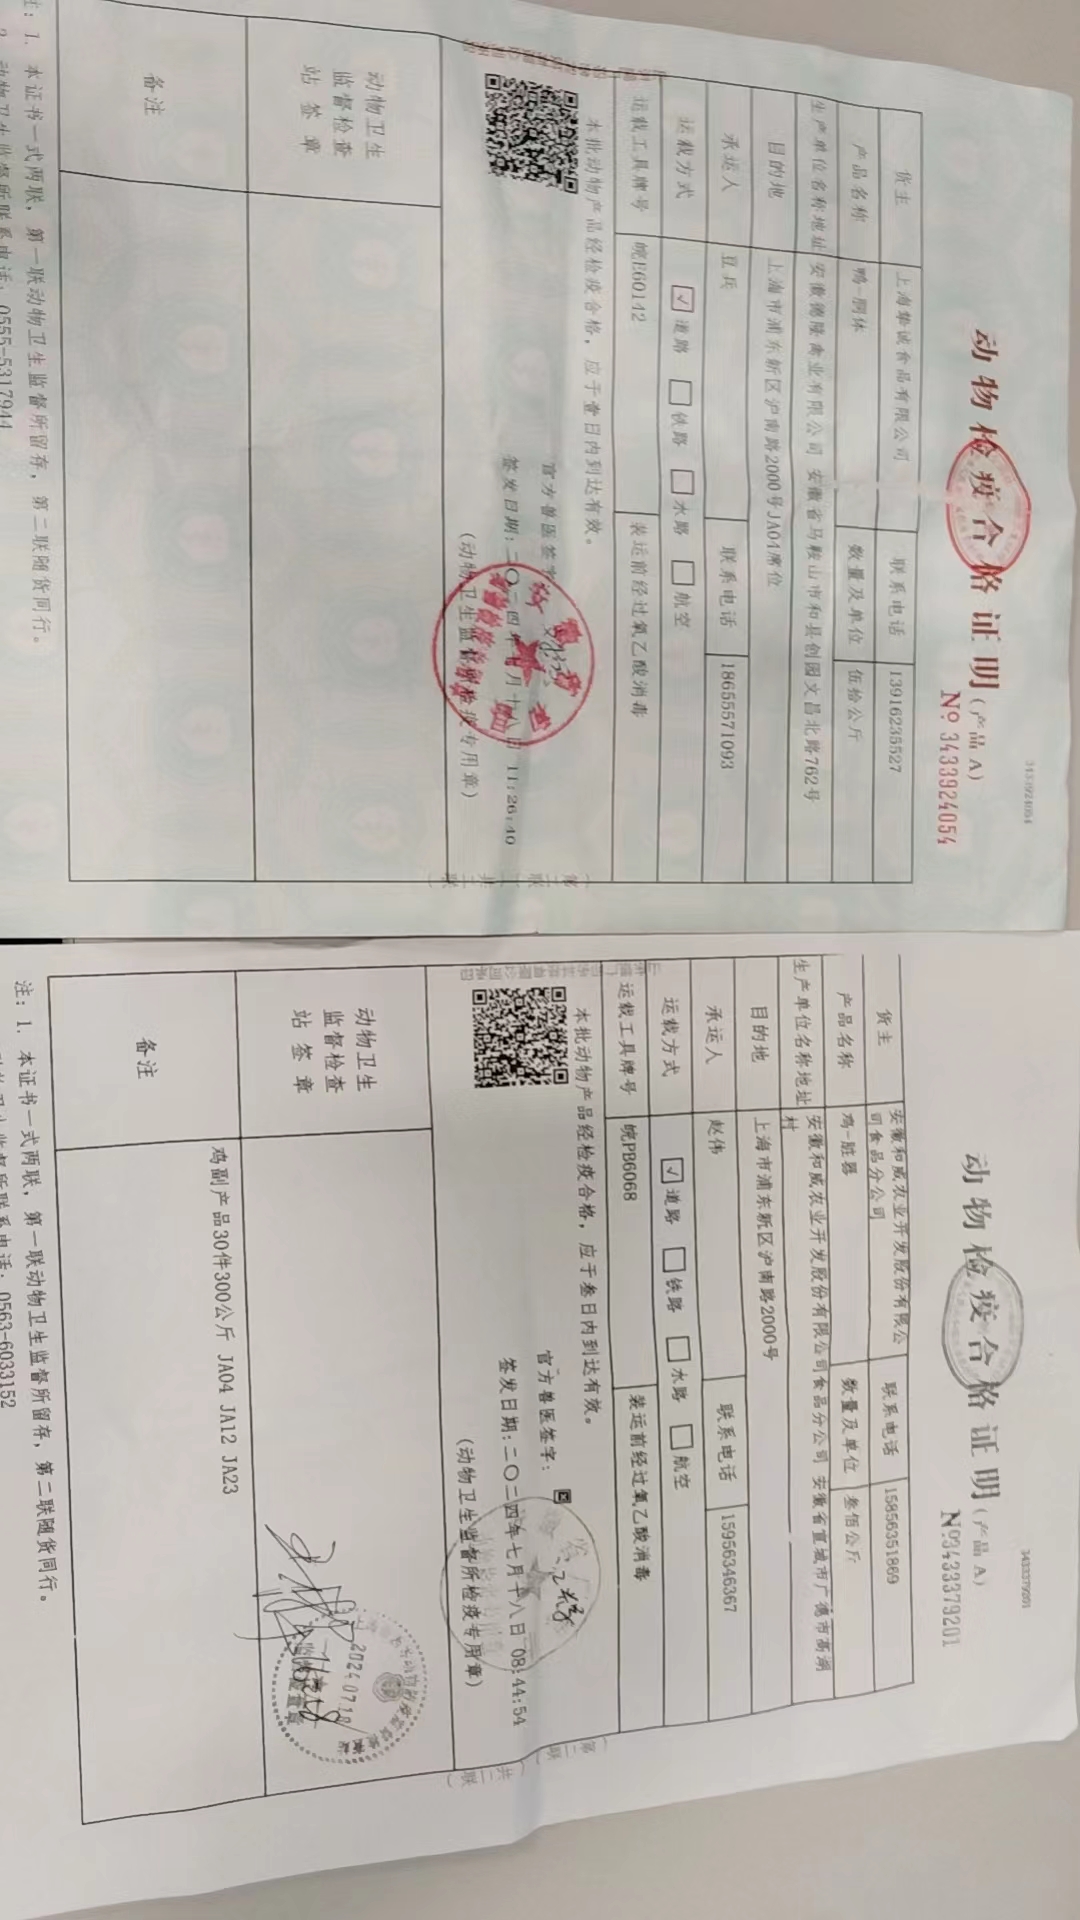 3433924054
动物检疫合格证明(产品 A)
№ 3433924054
货主 上海牮诚食品有限公司 联系电话 13916235527
产品名称 鸭-胴体 数量及单位 伍拾公斤
生产单位名称地址 安徽德隆禽业有限公司 安徽省马鞍山市和县创园文昌北路762号
目的地 上海市浦东新区沪南路2000号JA04席位
承运人 豆兵 联系电话 18655571093
运载方式 ☑道路 □铁路 □水路 □航空
运载工具牌号 皖E60142 装运前经过氧乙酸消毒
本批动物产品经检疫合格，应于壹日内到达有效。
官方兽医签字
签发日期：二〇二四年七月十八日 11:26:40
(动物卫生监督所检疫专用章)
动物卫生
监督检查
站 签 章
备注
注：1. 本证书一式两联，第一联动物卫生监督所留存，第二联随货同行。
2. 动物卫生监督所联系电话：0555-5317944
(第二联 共二联)
3433379201
动物检疫合格证明(产品 A)
№3433379201
货主 安徽和威农业开发股份有限公
司食品分公司 联系电话 15856351869
产品名称 鸡-脏器 数量及单位 叁佰公斤
生产单位名称地址 安徽和威农业开发股份有限公司食品分公司 安徽省宣城市广德市高湖
村
目的地 上海市浦东新区沪南路2000号
承运人 赵伟 联系电话 15956346367
运载方式 ☑道路 □铁路 □水路 □航空
运载工具牌号 皖PB6068 装运前经过氧乙酸消毒
本批动物产品经检疫合格，应于叁日内到达有效。
官方兽医签字：
签发日期：二〇二四年七月十八日 08:44:54
(动物卫生监督所检疫专用章)
动物卫生
监督检查
站 签 章
20240718
鸡副产品30件300公斤 JA04 JA12 JA23
备注
注：1. 本证书一式两联，第一联动物卫生监督所留存，第二联随货同行。
动物卫生监督所联系电话：0563-6033152
(第二联 共二联)